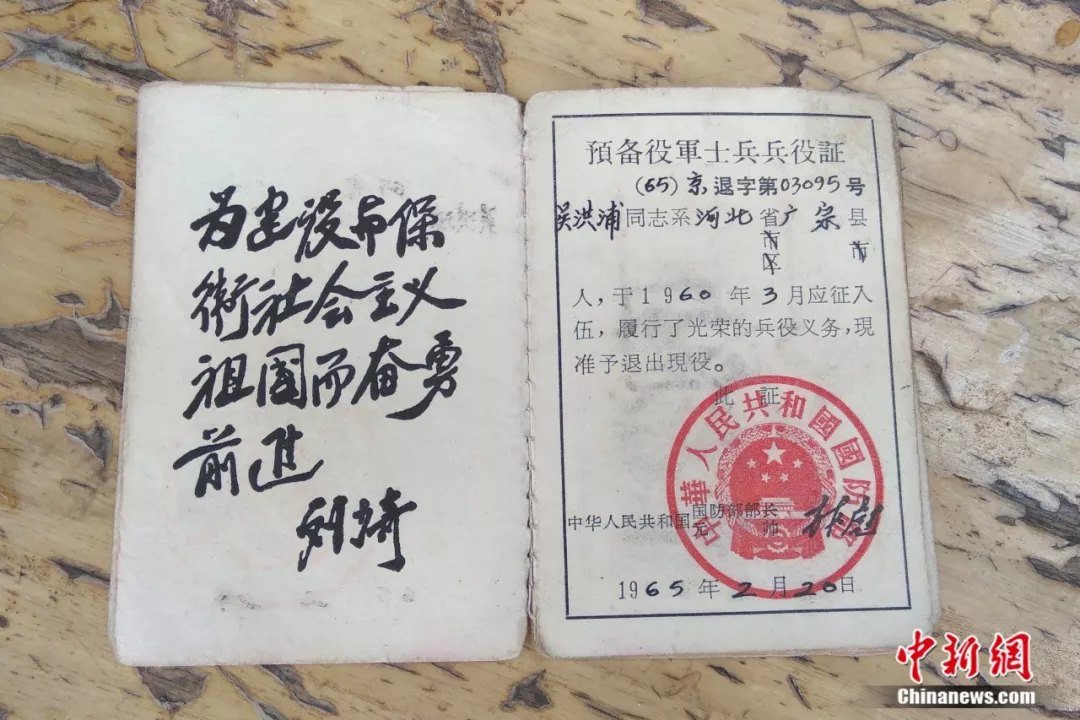 为建設与保
衛社会主义
祖國而奋勇
前進
預备役軍士兵兵役証
(65)京退字第03095号
吴洪浦同志系河北省广宗县
市 市
区
人,于1960年3月应征入
伍,履行了光荣的兵役义务,現
准予退出現役。
此証
中華人民共和國國防部
中华人民共和国国防部长
元帅 林彪
1965年2月20日
中新网
Chinanews.com